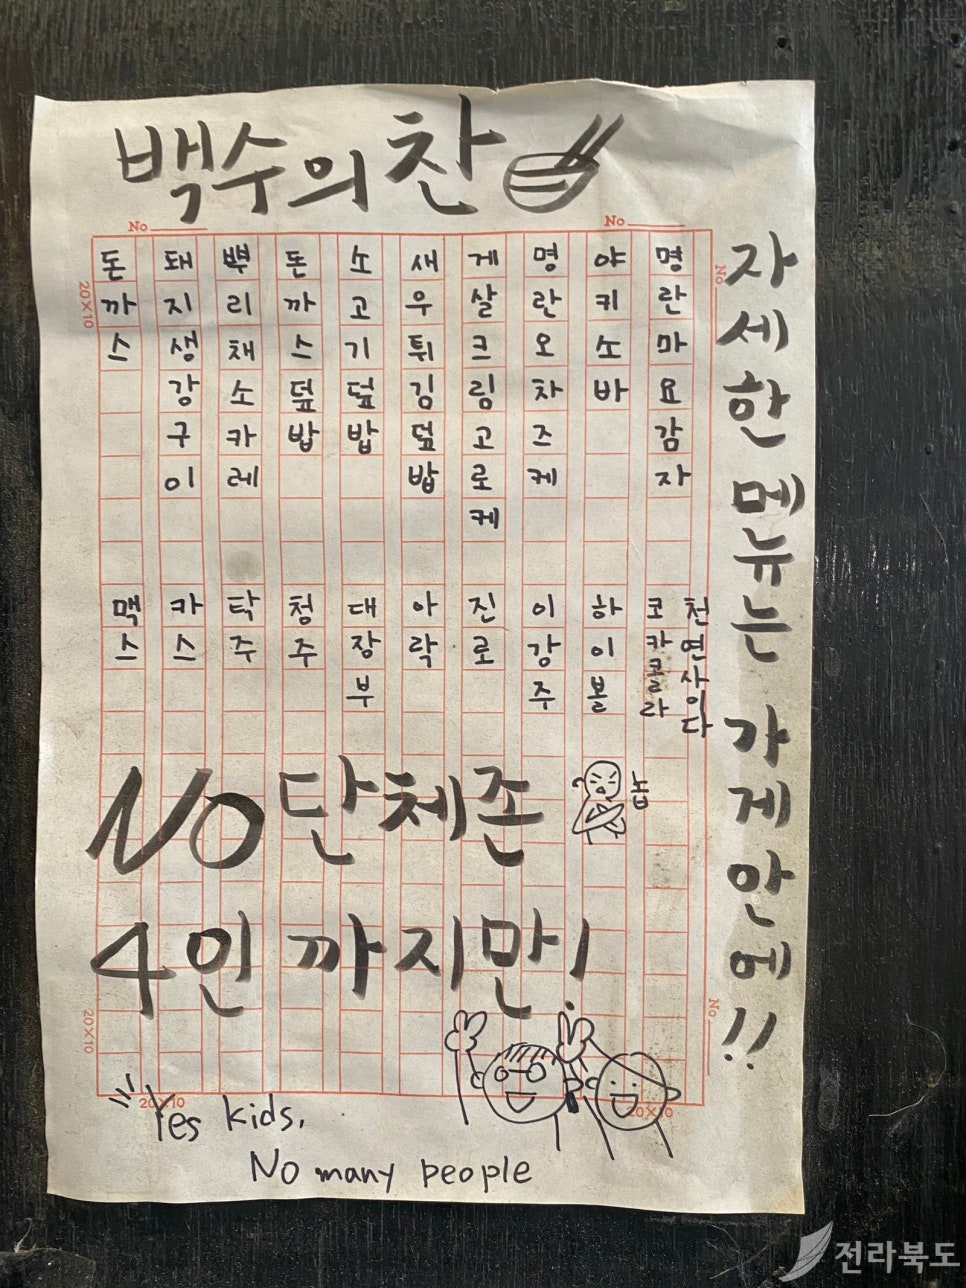 백수의 찬
No
No
No
20×10
돈까스
돼지생강구이
뿌리채소카레
돈까스덮밥
소고기덮밥
새우튀김덮밥
게살크림고로케
명란오차즈케
야키소바
명란마요감자
맥스
카스
탁주
청주
대장부
아락
진로
이강주
하이볼
코카콜라
천연사이다
자세한 메뉴는 가게 안에!!
NO 단체존
놉
4인까지만!
No
20×10
20×10
20×10
Yes kids,
No many people
전라북도